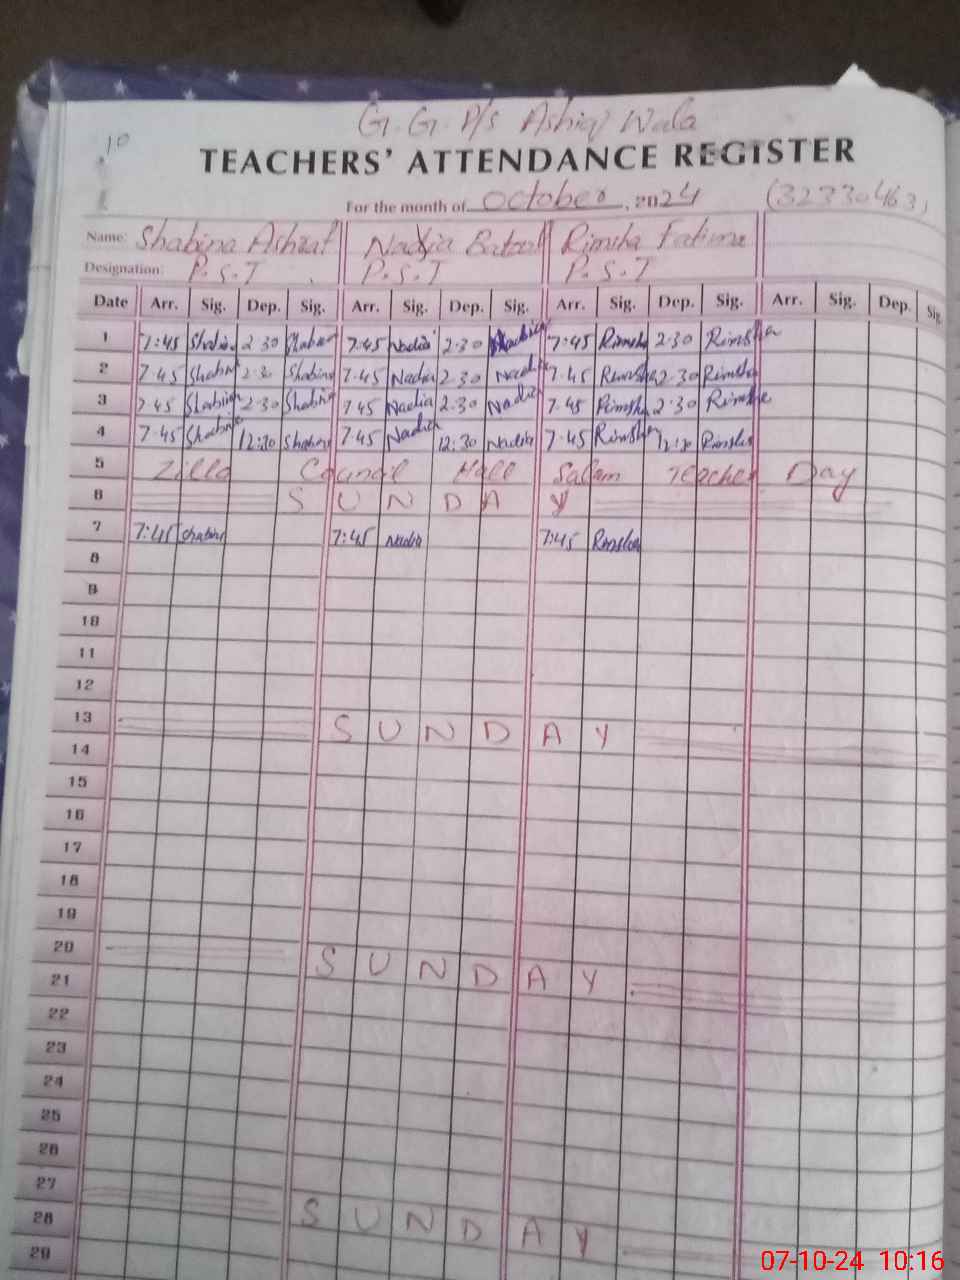 10
G.G.P/s Ashiq Wala
TEACHERS' ATTENDANCE REGISTER
For the month of October, 2024 (32330463)
Name: Shabina Ashraf Nadia Batool Rimsha Fatima
Designation: P.S.T P.S.T P.S.T
Date Arr. Sig. Dep. Sig. Arr. Sig. Dep. Sig. Arr. Sig. Dep. Sig. Arr. Sig. Dep. Sig.
1 7:45 Shabina 2 30 Shabina 7:45 Nadia 2:30 Nadia 7:45 Rimsha 2:30 Rimsha
2 7.45 Shabina 2:30 Shabina 7.45 Nadia 2.30 Nadia 7.45 Rimsha 2.30 Rimsha
3 7.45 Shabina 2.30 Shabina 745 Nadia 2.30 Nadia 7.45 Rimsha 2:30 Rimsha
4 7.45 Shabina 12:30 Shabina 7.45 Nadia 12:30 Nadia 7.45 Rimsha 12:30 Rimsha
5 Zilla Council Hall Salam Teacher Day
6 SUNDAY
7 7:45 Shabina 7:45 Nadia 7:45 Rimsha
8
9
10
11
12
13 SUNDAY
14
15
16
17
18
19
20 SUNDAY
21
22
23
24
25
26
27 SUNDAY
28
29
07-10-24 10:16